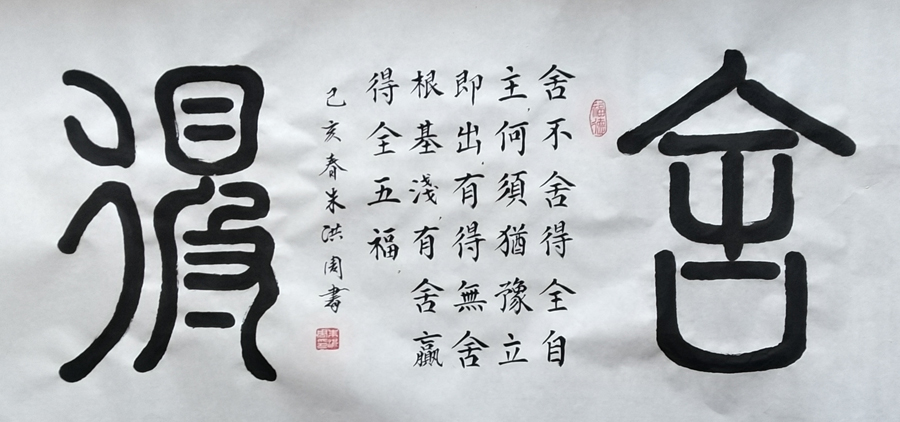 舍得
舍不舍得全自
主何須猶豫立
即出有得無舍
根基淺有舍贏
得全五福
己亥春朱洪周書